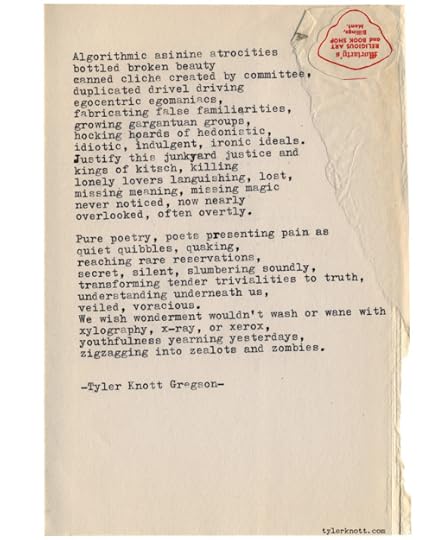 Moriarty's
RELIGIOUS ART
and BOOK SHOP
Billings,
Mont.
Algorithmic asinine atrocities
bottled broken beauty
canned cliche created by committee,
duplicated drivel driving
egocentric egomaniacs,
fabricating false familiarities,
growing gargantuan groups,
hocking hoards of hedonistic,
idiotic, indulgent, ironic ideals.
Justify this junkyard justice and
kings of kitsch, killing
lonely lovers languishing, lost,
missing meaning, missing magic
never noticed, now nearly
overlooked, often overtly.
Pure poetry, poets presenting pain as
quiet quibbles, quaking,
reaching rare reservations,
secret, silent, slumbering soundly,
transforming tender trivialities to truth,
understanding underneath us,
veiled, voracious.
We wish wonderment wouldn't wash or wane with
xylography, x-ray, or xerox,
youthfulness yearning yesterdays,
zigzagging into zealots and zombies.
-Tyler Knott Gregson-
tylerknott.com